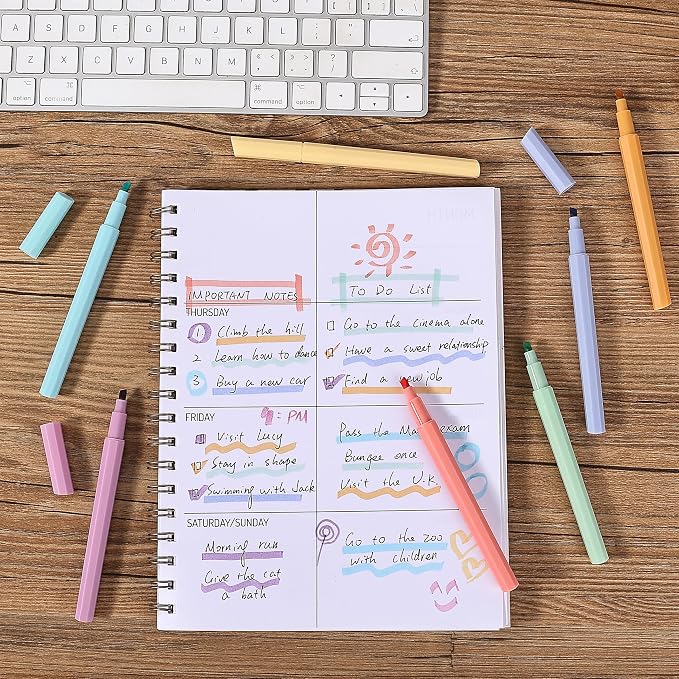 option
command
command
option
IMPORTANT NOTES
To Do List
THURSDAY
1 Climb the hill
2 Learn how to dance
3 Buy a new car
Go to the cinema alone
Have a sweet relationship
Find a new job
FRIDAY
= PM
Visit Lucy
Stay in shape
Swimming with Jack
Pass the Math exam
Bungee once
Visit the U.K.
SATURDAY/SUNDAY
Morning run
Give the cat
a bath
Go to the zoo
with children